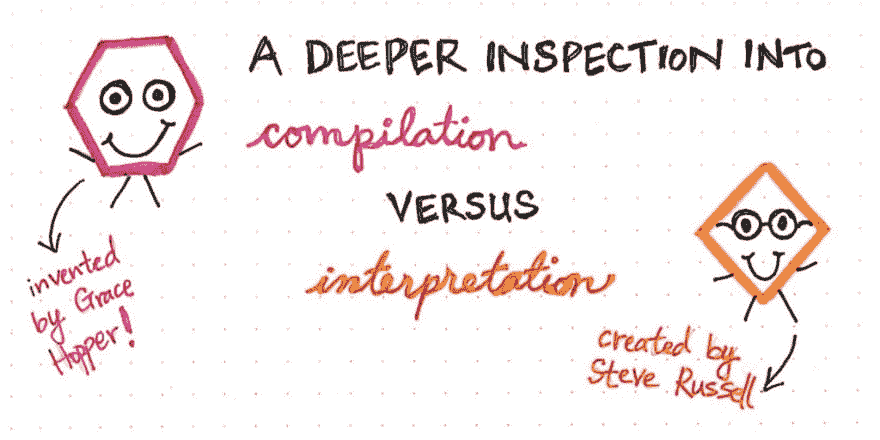 A DEEPER INSPECTION INTO
compilation
VERSUS
interpretation
invented
by Grace
Hopper!
created by
Steve Russell